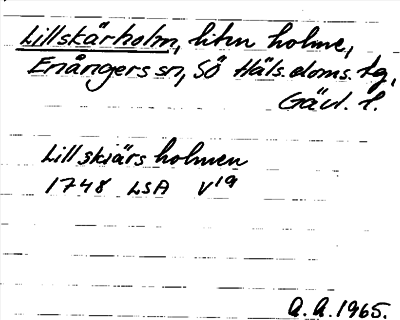 Lillskärholm, liten holme,
Enångers sn, Sö Häls. doms. tg,
Gävl. l.
Lillskiärs holmen
1748 LSA V19
A.A. 1965.